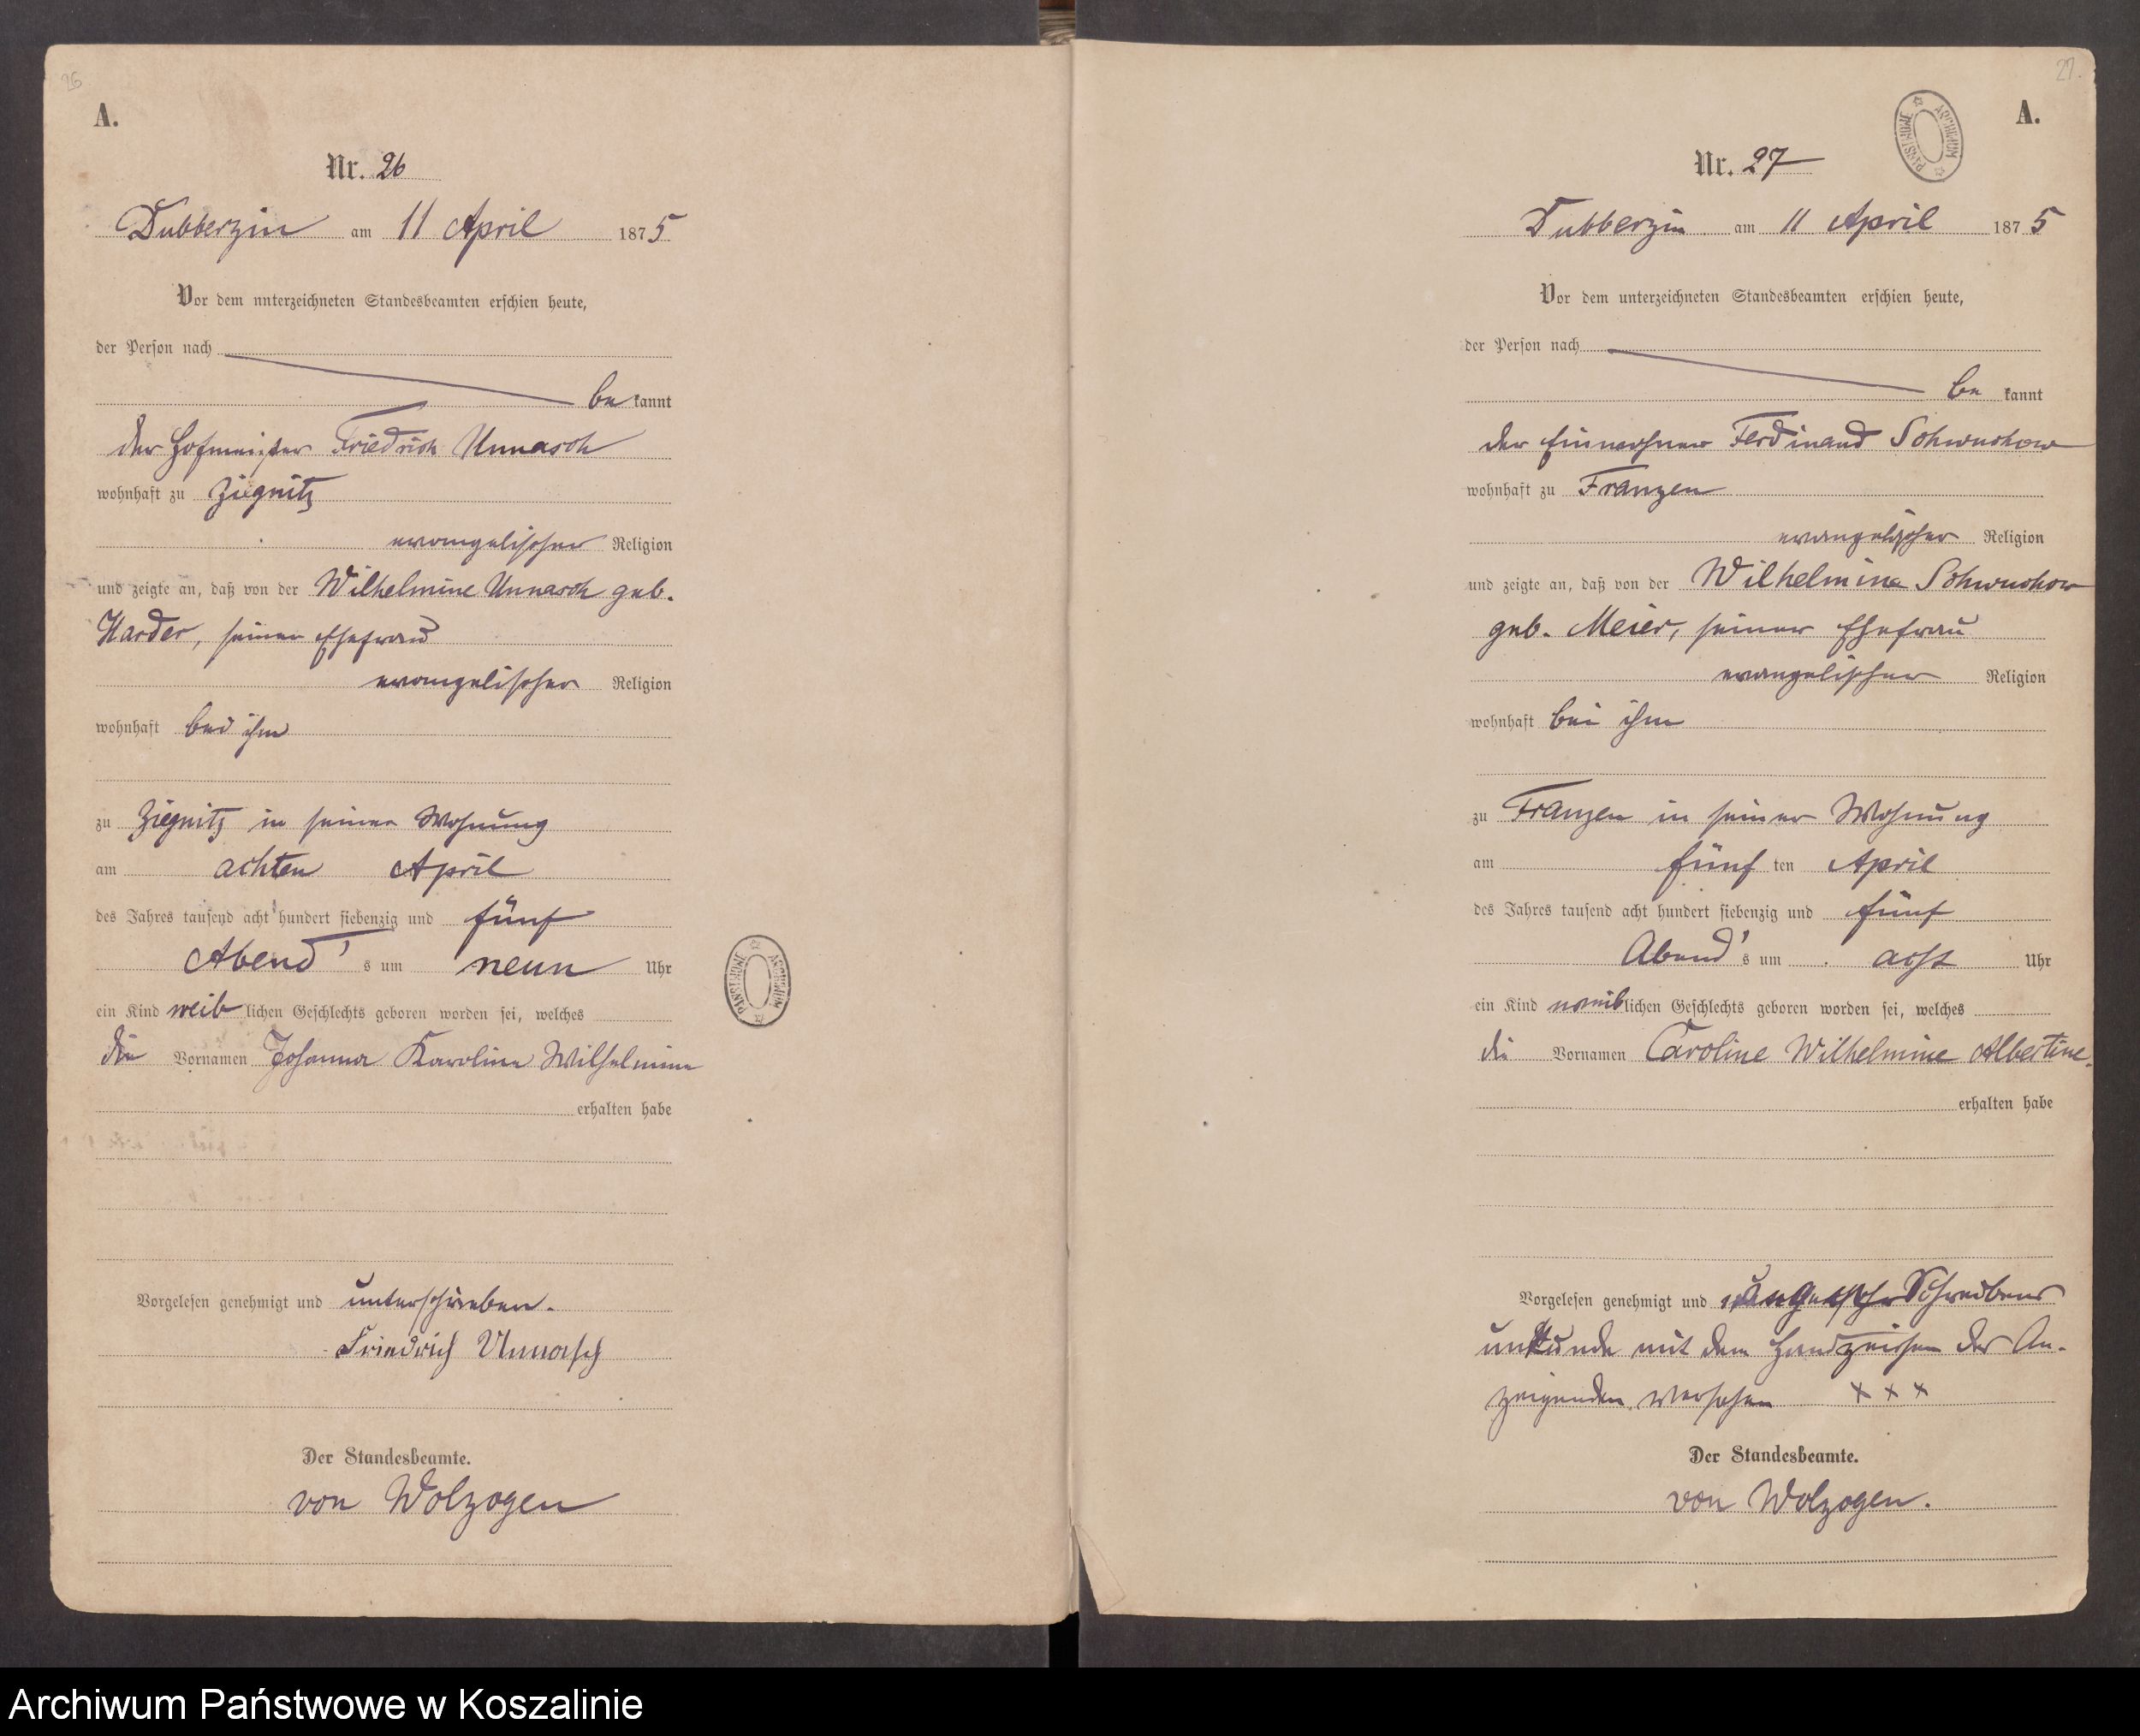 26
A.
Nr. 26
Dubberzin am 11 April 1875
Vor dem unterzeichneten Standesbeamten erschien heute,
der Person nach
be kannt
der Hofmeister Friedrich Unnasch
wohnhaft zu Ziegnitz
evangelischer Religion
und zeigte an, daß von der Wilhelmine Unnasch geb.
Harder, seiner Ehefrau
evangelischer Religion
wohnhaft bei ihm
zu Ziegnitz in seiner Wohnung
am achten April
des Jahres tausend acht hundert siebenzig und fünf
Abend's um neun Uhr
ein Kind weiblichen Geschlechts geboren worden sei, welches
die Vornamen Johanna Karoline Wilhelmine
erhalten habe
Vorgelesen genehmigt und unterschrieben.
Friedrich Unnasch
Der Standesbeamte.
von Wolzogen
ARCHIWUM PAŃSTWOWE
27.
A.
ARCHIWUM PAŃSTWOWE
Nr. 27
Dubberzin am 11 April 1875
Vor dem unterzeichneten Standesbeamten erschien heute,
der Person nach
be kannt
der Einwohner Ferdinand Schwuchow
wohnhaft zu Franzen
evangelischer Religion
und zeigte an, daß von der Wilhelmine Schwuchow
geb. Meier, seiner Ehefrau
evangelischer Religion
wohnhaft bei ihm
zu Franzen in seiner Wohnung
am fünf ten April
des Jahres tausend acht hundert siebenzig und fünf
Abend's um acht Uhr
ein Kind weiblichen Geschlechts geboren worden sei, welches
die Vornamen Caroline Wilhelmine Albertine.
erhalten habe
Vorgelesen genehmigt und Schreibens
unkunde mit dem Handzeichen des An-
zeigenden versehen + + +
Der Standesbeamte.
von Wolzogen.
Archiwum Państwowe w Koszalinie